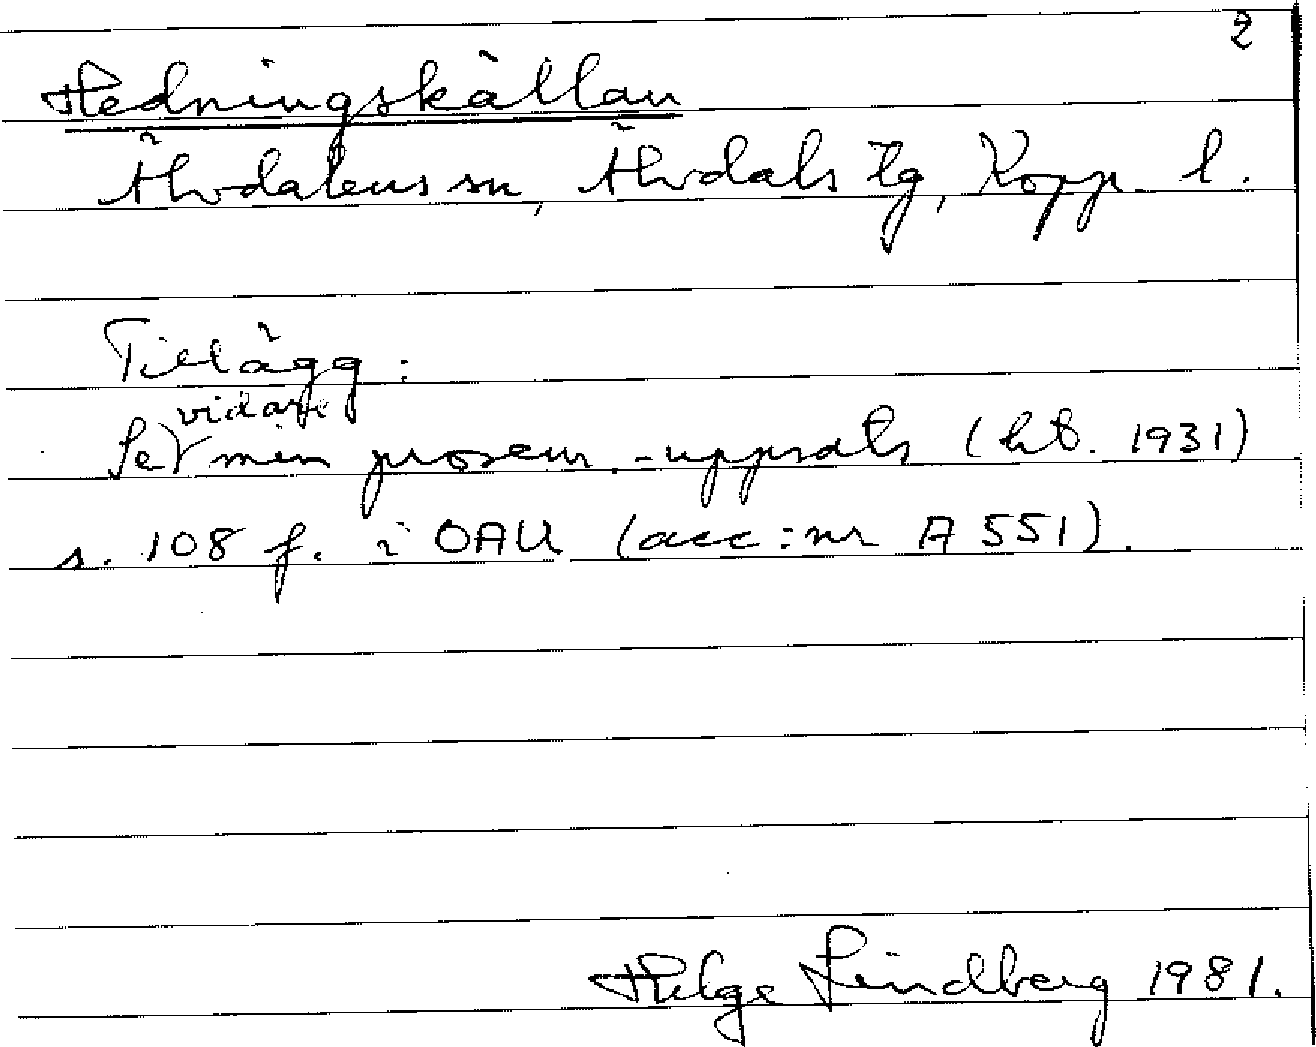 2
Hedningskällan
Älvdalens sn, Älvdals tg, Kopp. l.
Tillägg:
Se vidare min prosem.-uppsats (ht. 1931)
s. 108 f. i OAU (acc:nr A 551).
Helge Lindberg 1981.